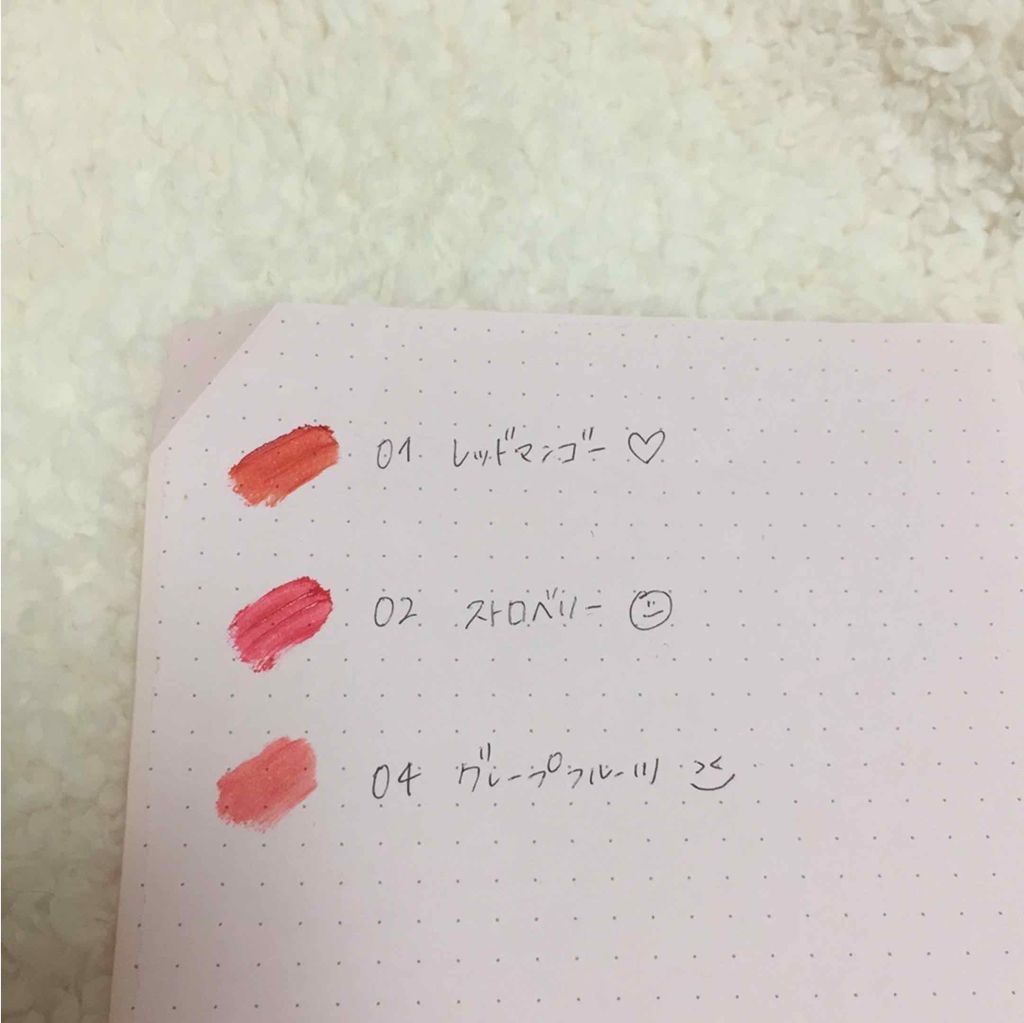 01. レッドマンゴー ♡
02 ストロベリー ☺
04 グレープフルーツ ><